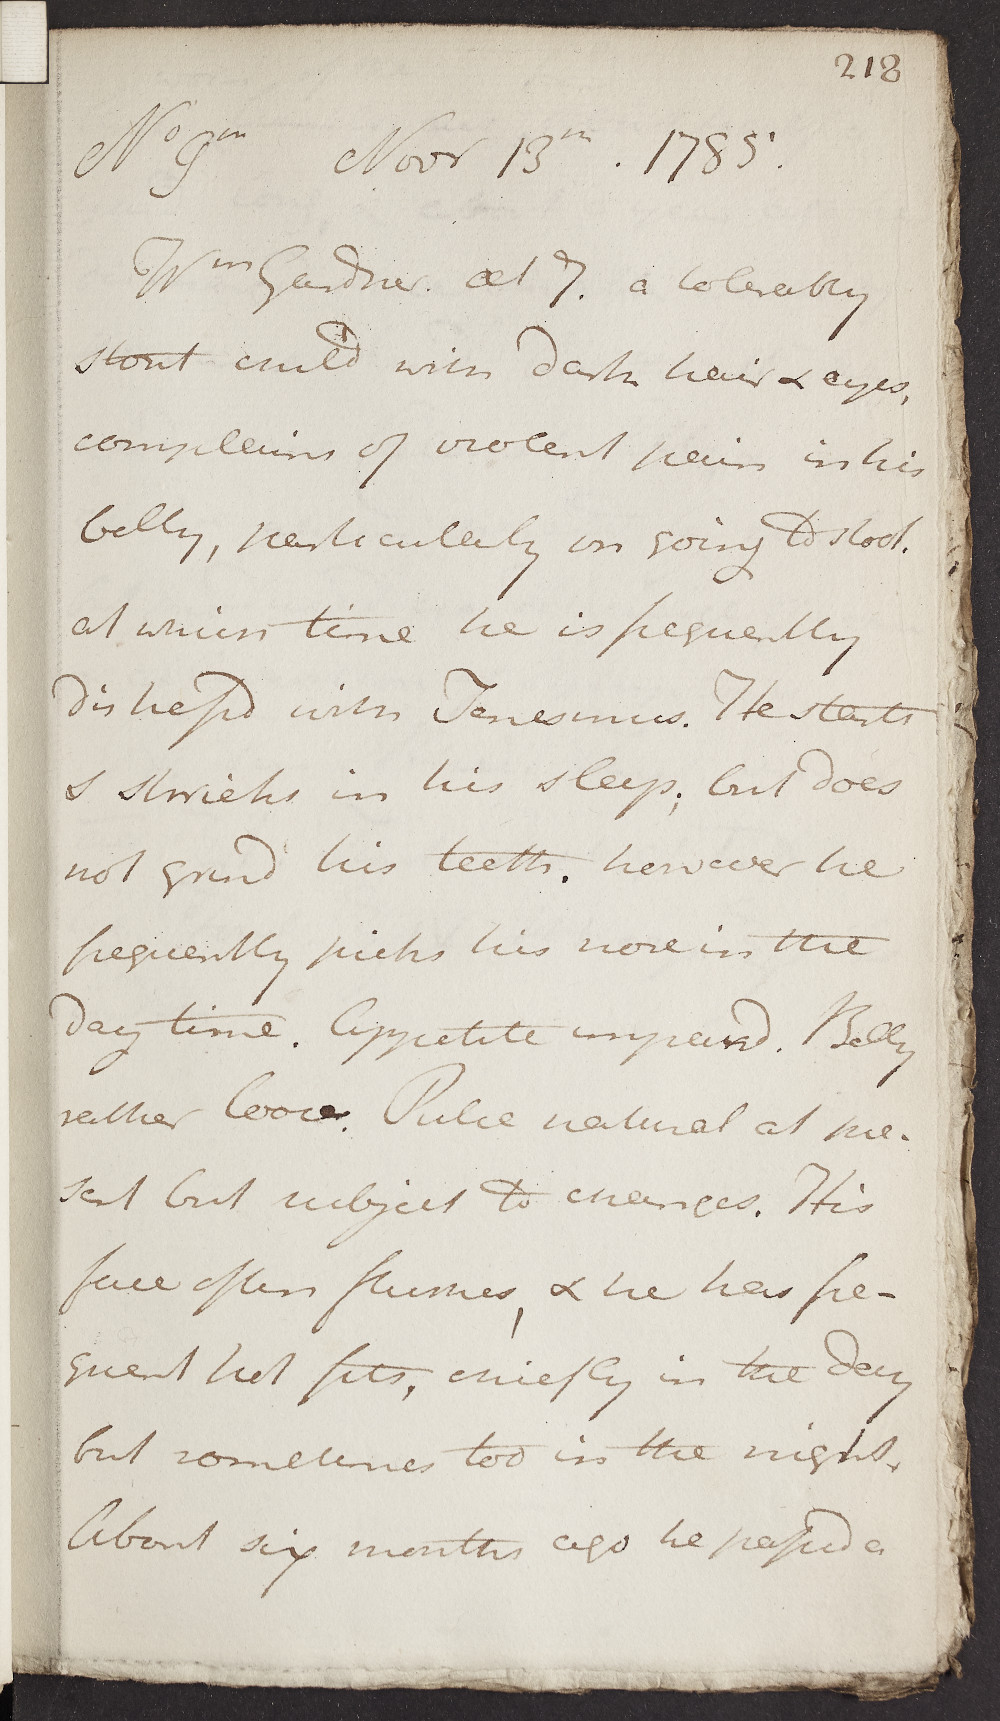 218
No 9th Novr 13th. 1785.
Wm Gardner. aet 7. a tolerably
stout child with dark hair & eyes,
complains of violent pain in his
belly, particularly on going to stool.
at which time he is frequently
distress'd with Tenesmus. He starts
& shrieks in his sleep, but does
not grind his teeth. however he
frequently picks his nose in the
day time. Appetite impaird. Belly
rather loose. Pulse natural at pre-
sent but subject to changes. His
face often flushes, & he has fre-
quent hot fits, chiefly in the day
but sometimes too in the night.
About six months ago he pass'd a